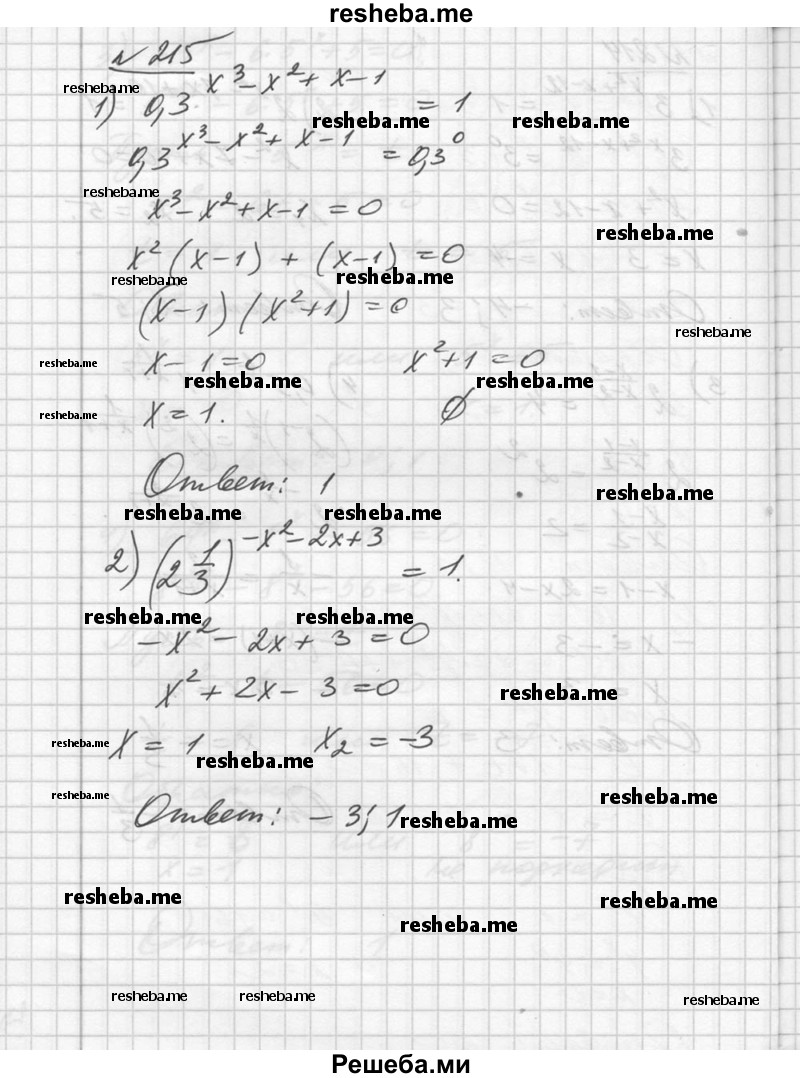 resheba.me
№ 215
resheba.me
1) 0,3^(x³-x²+x-1) = 1
resheba.me resheba.me
0,3^(x³-x²+x-1) = 0,3⁰
resheba.me
x³-x²+x-1 = 0
resheba.me
x²(x-1) + (x-1) = 0
resheba.me resheba.me
(x-1)(x²+1) = 0
resheba.me
x-1=0 x²+1=0
resheba.me
resheba.me resheba.me
x=1. ∅
resheba.me
Ответ: 1
resheba.me
resheba.me resheba.me
2) (2 1/3)^(-x²-2x+3) = 1.
resheba.me resheba.me
-x²-2x+3=0
x²+2x-3=0
resheba.me
x=1 x₂=-3
resheba.me
resheba.me
resheba.me resheba.me
Ответ: -3; 1
resheba.me
resheba.me resheba.me
resheba.me
resheba.me resheba.me resheba.me
Решеба.ми